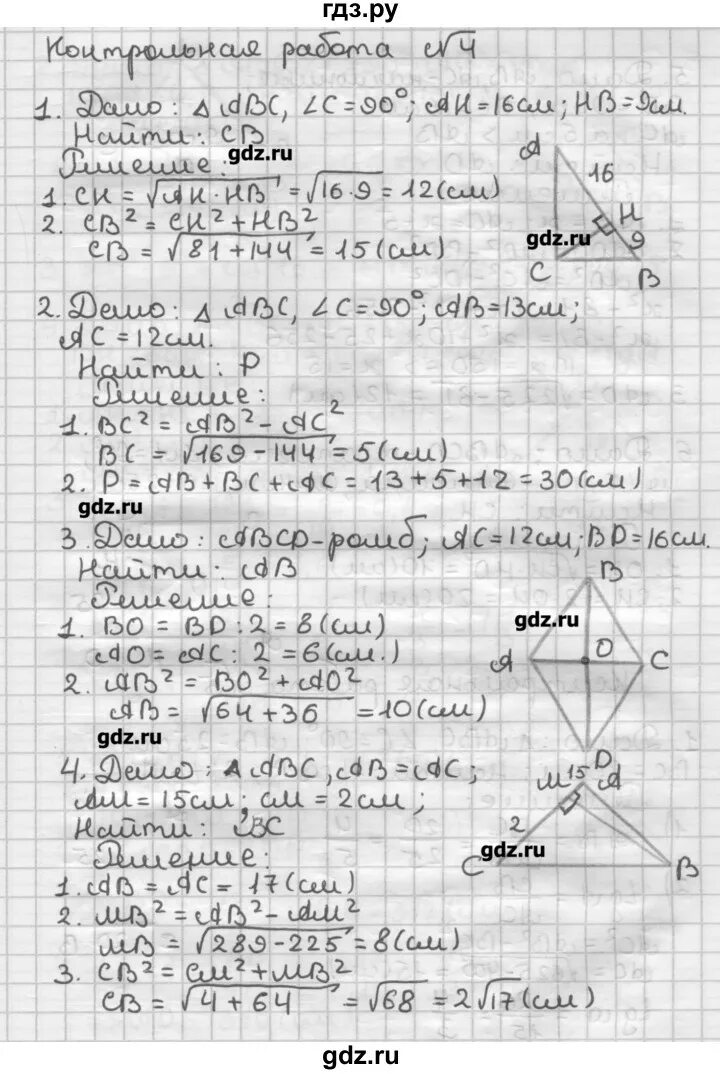 гдз.ру
Контрольная работа №4
1. Дано: △ABC, ∠C=90°; AH=16см; HB=9см.
Найти: CB
gdz.ru
Решение:
1. CH = √AH·HB = √16·9 = 12(см)
2. CB² = CH² + HB²
CB = √81+144 = 15(см)
A
16
H
gdz.ru
9
C
B
2. Дано: △ABC, ∠C=90°; AB=13см;
AC=12см.
Найти: P
Решение:
1. BC² = AB² - AC²
BC = √169-144 = 5(см)
2. P = AB+BC+AC = 13+5+12 = 30(см)
gdz.ru
3. Дано: ABCD-ромб; AC=12см; BD=16см.
Найти: AB
Решение:
1. BO = BD:2 = 8(см)
AO = AC:2 = 6(см.)
2. AB² = BO² + AO²
AB = √64+36 = 10(см)
gdz.ru
B
gdz.ru
A
O
C
D
4. Дано: △ABC, AB=AC;
AM=15см; CM=2см;
Найти: BC
Решение:
1. AB = AC = 17(см)
2. MB² = AB² - AM²
MB = √289-225 = 8(см)
3. CB² = CM² + MB²
CB = √4+64 = √68 = 2√17(см)
M
15
A
2
gdz.ru
C
B
gdz.ru